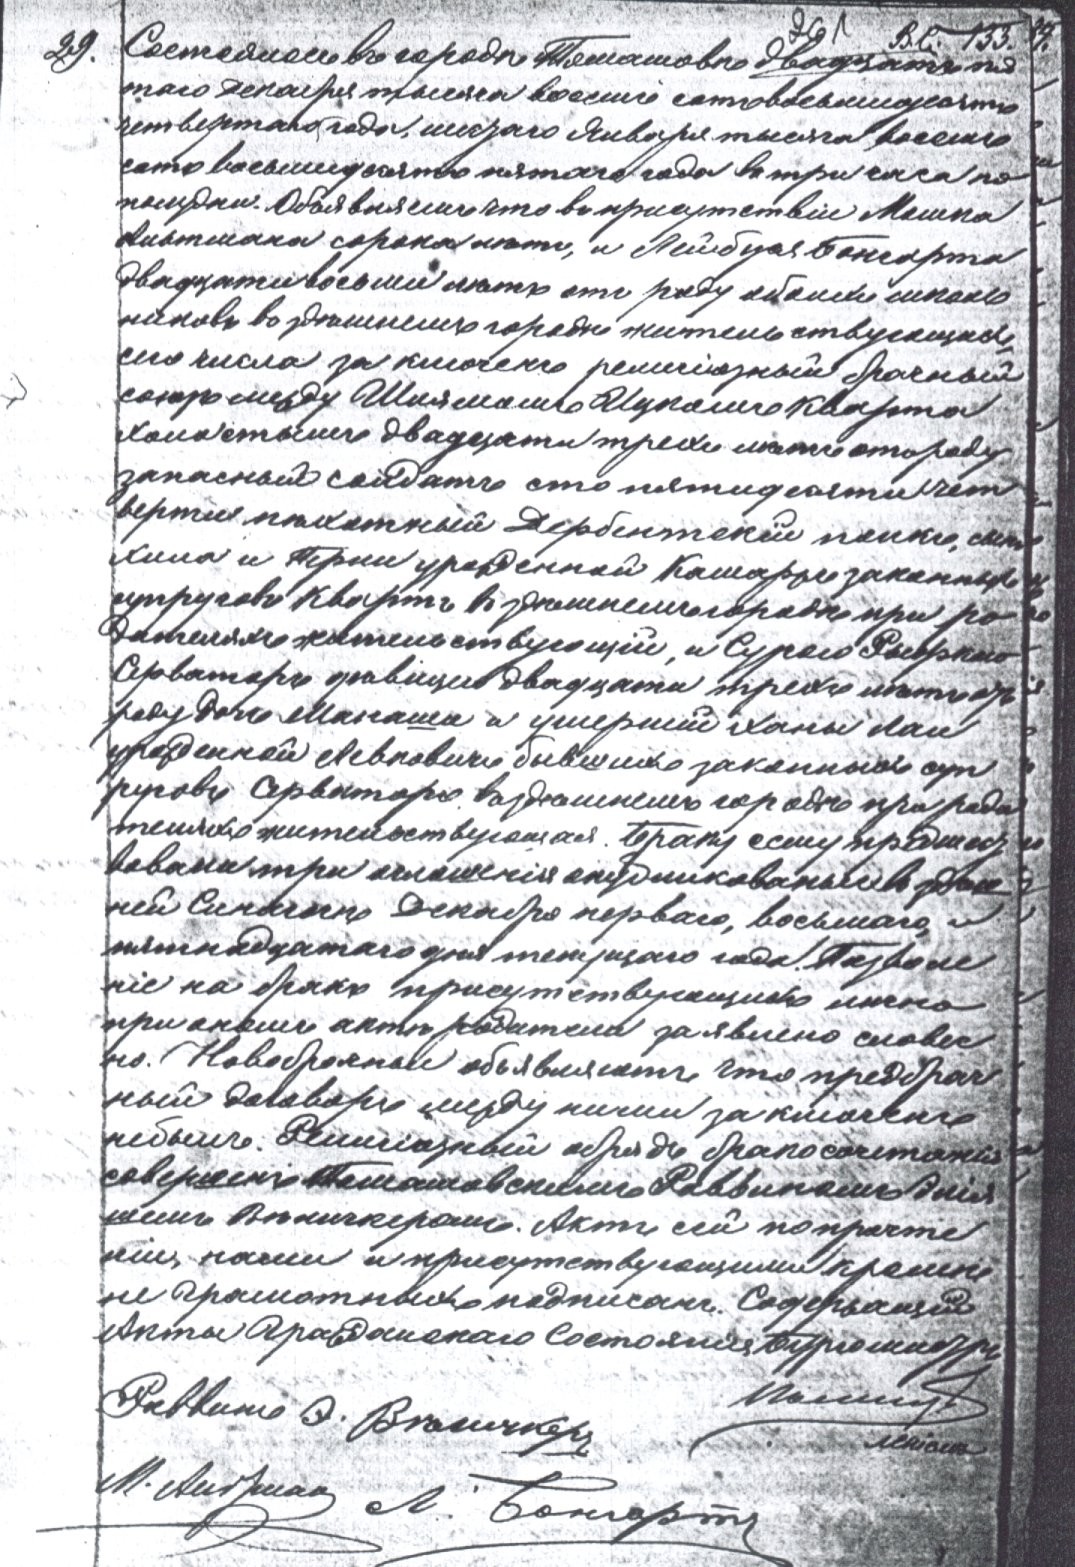 261 В.С. 133.
29. Состоялось въ городѣ Томашовѣ двадцать пя
таго Декабря тысяча восемьсотъ восемьдесятъ
четвертаго года, шестаго Января тысяча восемь
сотъ восемьдесятъ пятаго года въ три часа по
полудни. Объявляемъ что въ присутствіи Мошка
Альтмана сорока лѣтъ, и Лейбуся Бонгарта
двадцати восьми лѣтъ отъ роду обоихъ школь
никовъ въ здѣшнемъ городѣ жительствующихъ,
сего числа заключенъ религіозный брачный
союзъ между Шлямою Ицкомъ Квартъ
холостымъ двадцати трехъ лѣтъ отъ роду
запасный солдатъ сто пятидесяти чет
верти пѣхотный Дербентскій полкъ, сынъ
Хила и уржденной законныхъ
супруговъ Квартъ въ здѣшнемъ городѣ при ро
дителяхъ жительствующій, и Сурою Рыфкою
Серваторъ дѣвицею двадцати трехъ лѣтъ отъ
роду дочь Манаша и умершей Ханы Лаи
урожденной Левковичъ бывшихъ законныхъ суп
руговъ Серваторъ въ здѣшнемъ городѣ при роди
теляхъ жительствующая. Браку сему предшест
вовали три оглашенія опубликованные въ здѣш
ней Синагогѣ Декабря перваго, восьмаго, и
пятнадцатаго дня текущаго года. Позволе
ніе на бракъ присутствующихъ лично
при ономъ актѣ родители заявлено словес
но. Новобрачные объявляютъ что предбрач
ный договоръ между ними заключенъ
небылъ. Религіозный обрядъ бракосочетанія
совершенъ Томашовскимъ Раввиномъ
шемъ Вѣличкеромъ. Актъ сей по прочте
ніи, нами и присутствующими кромѣ
не грамотныхъ подписанъ. Содержащій
Акты Гражданскаго Состоянія Бургомистръ
Раввинъ Э. Вѣличкеръ
М. Альтман Л. Бонгартъ